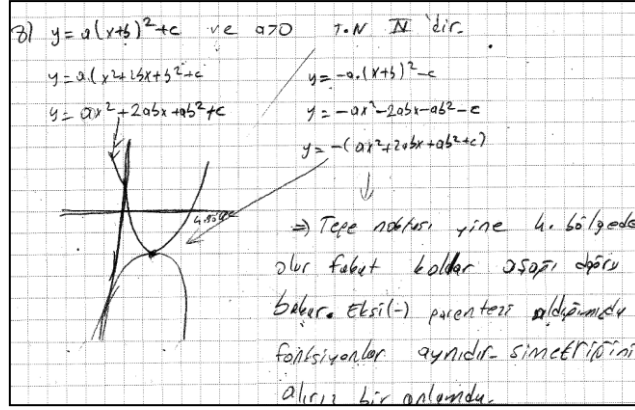 8) y = a(x+b)² + c ve a>0 T.N IV 'dir.
y = a.(x²+2bx+b²+c
y = ax²+2abx+ab²+c
y = -a.(x+b)² - c
y = -ax²-2abx-ab²-c
y = -(ax²+2abx+ab²+c)
4. bölge
⇒ Tepe noktası yine 4. bölgede
olur fakat kollar aşağı doğru
bakar. Eksi(-) parentezi aldığımızda
fonksiyonlar aynıdır. simetriğini
alırız bir anlamda.